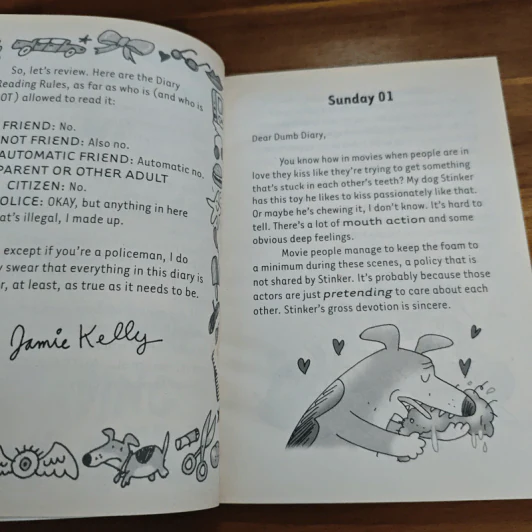 So, let's review. Here are the Diary
Reading Rules, as far as who is (and who is
NOT) allowed to read it:
FRIEND: No.
NOT FRIEND: Also no.
AUTOMATIC FRIEND: Automatic no.
PARENT OR OTHER ADULT
CITIZEN: No.
POLICE: OKAY, but anything in here
that's illegal, I made up.
except if you're a policeman, I do
swear that everything in this diary is
or, at least, as true as it needs to be.
Jamie Kelly
Sunday 01
Dear Dumb Diary,
You know how in movies when people are in
love they kiss like they're trying to get something
that's stuck in each other's teeth? My dog Stinker
has this toy he likes to kiss passionately like that.
Or maybe he's chewing it, I don't know. It's hard to
tell. There's a lot of mouth action and some
obvious deep feelings.
Movie people manage to keep the foam to
a minimum during these scenes, a policy that is
not shared by Stinker. It's probably because those
actors are just pretending to care about each
other. Stinker's gross devotion is sincere.